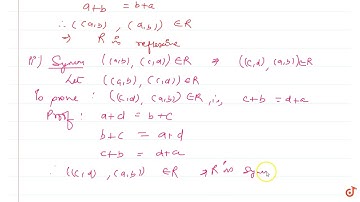 a+b = b+a
∴ ((a,b), (a,b)) ∈R
⇒ R is reflexive
ii) Symm ((a,b), (c,d)) ∈R ⇒ ((c,d), (a,b)) ∈R
Let ((a,b), (c,d)) ∈R
To prove : ((c,d), (a,b)) ∈R, i.e, c+b = d+a
Proof : a+d = b+c
b+c = a+d
c+b = d+a
∴ ((c,d), (a,b)) ∈R ⇒ R is Symm